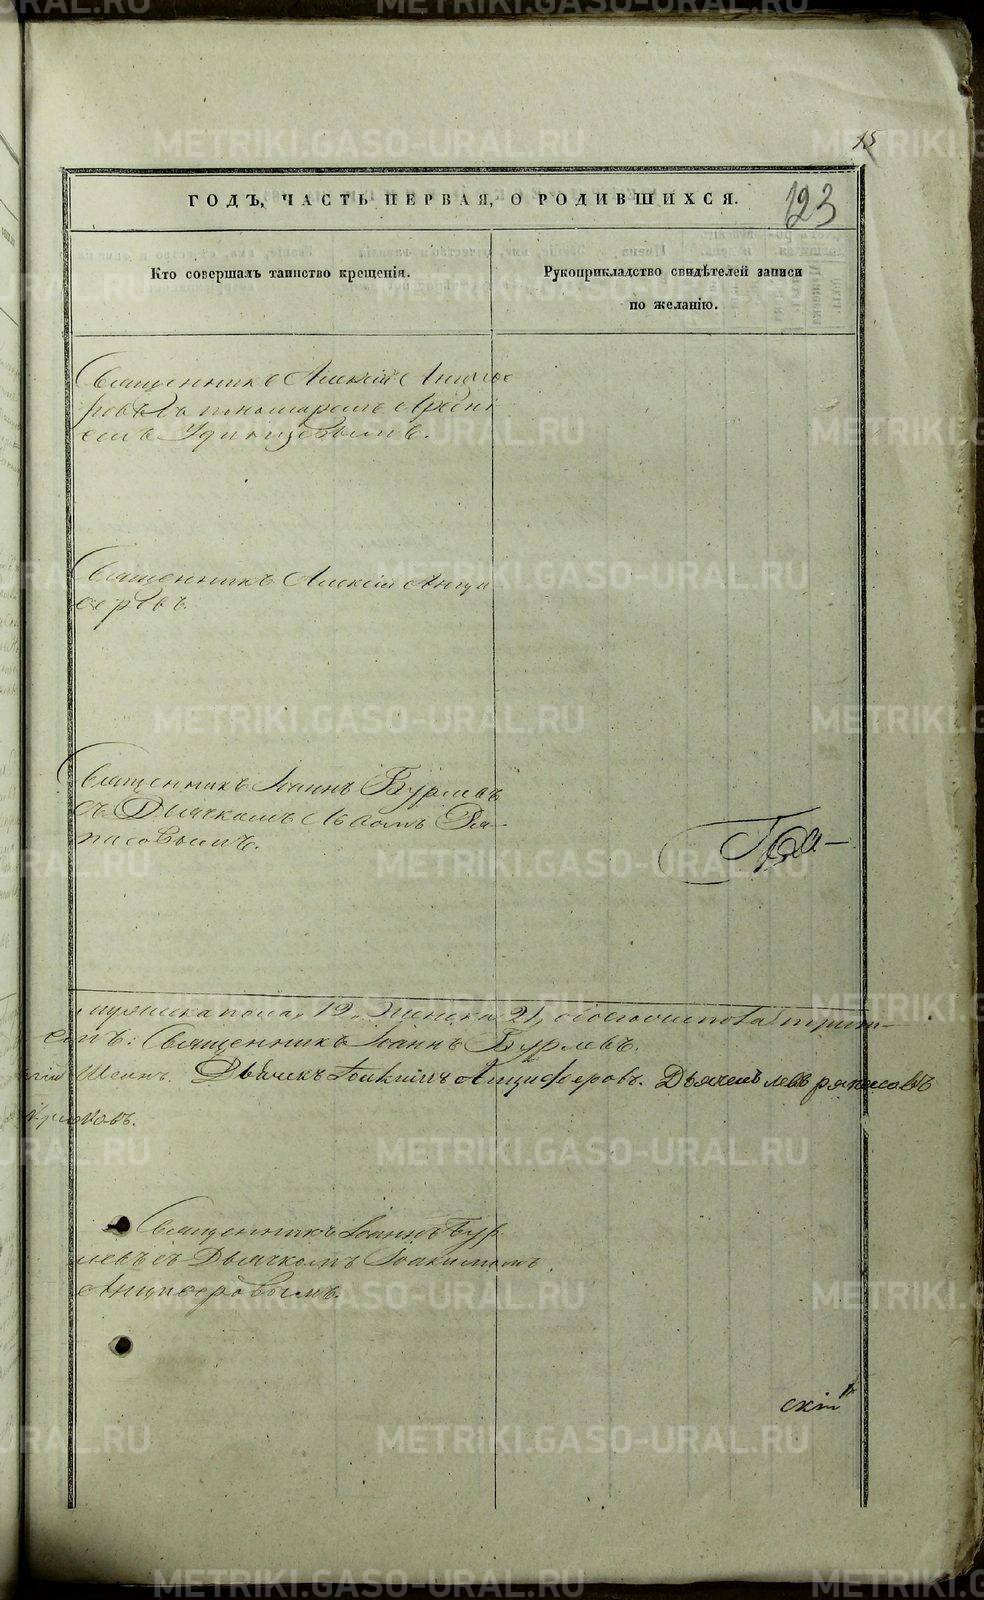 15
ГОДЪ, ЧАСТЬ ПЕРВАЯ, О РОДИВШИХСЯ.
123
Кто совершалъ таинство крещенія.
Рукоприкладство свидѣтелей записи
по желанію.
Священникъ Алексій Анциѳе
ровъ съ пономаремъ Арсені
емъ Удинцовымъ.
Священникъ Алексій Анци
ѳеровъ.
Священникъ Іоаннъ Бурлевъ
съ Дьячкомъ Львомъ Ря-
пасовымъ.
мужеска пола 12. Женска 21, обоего пола трит-
Священникъ Іоаннъ Бурлевъ.
Дьячекъ Іоакимъ Анциферовъ. Дьячекъ Левъ Ряпасовъ
Священникъ Іоаннъ Бур
левъ съ Дьячкомъ Іоакимомъ
Анциѳеровымъ.
скій
METRIKI.GASO-URAL.RU